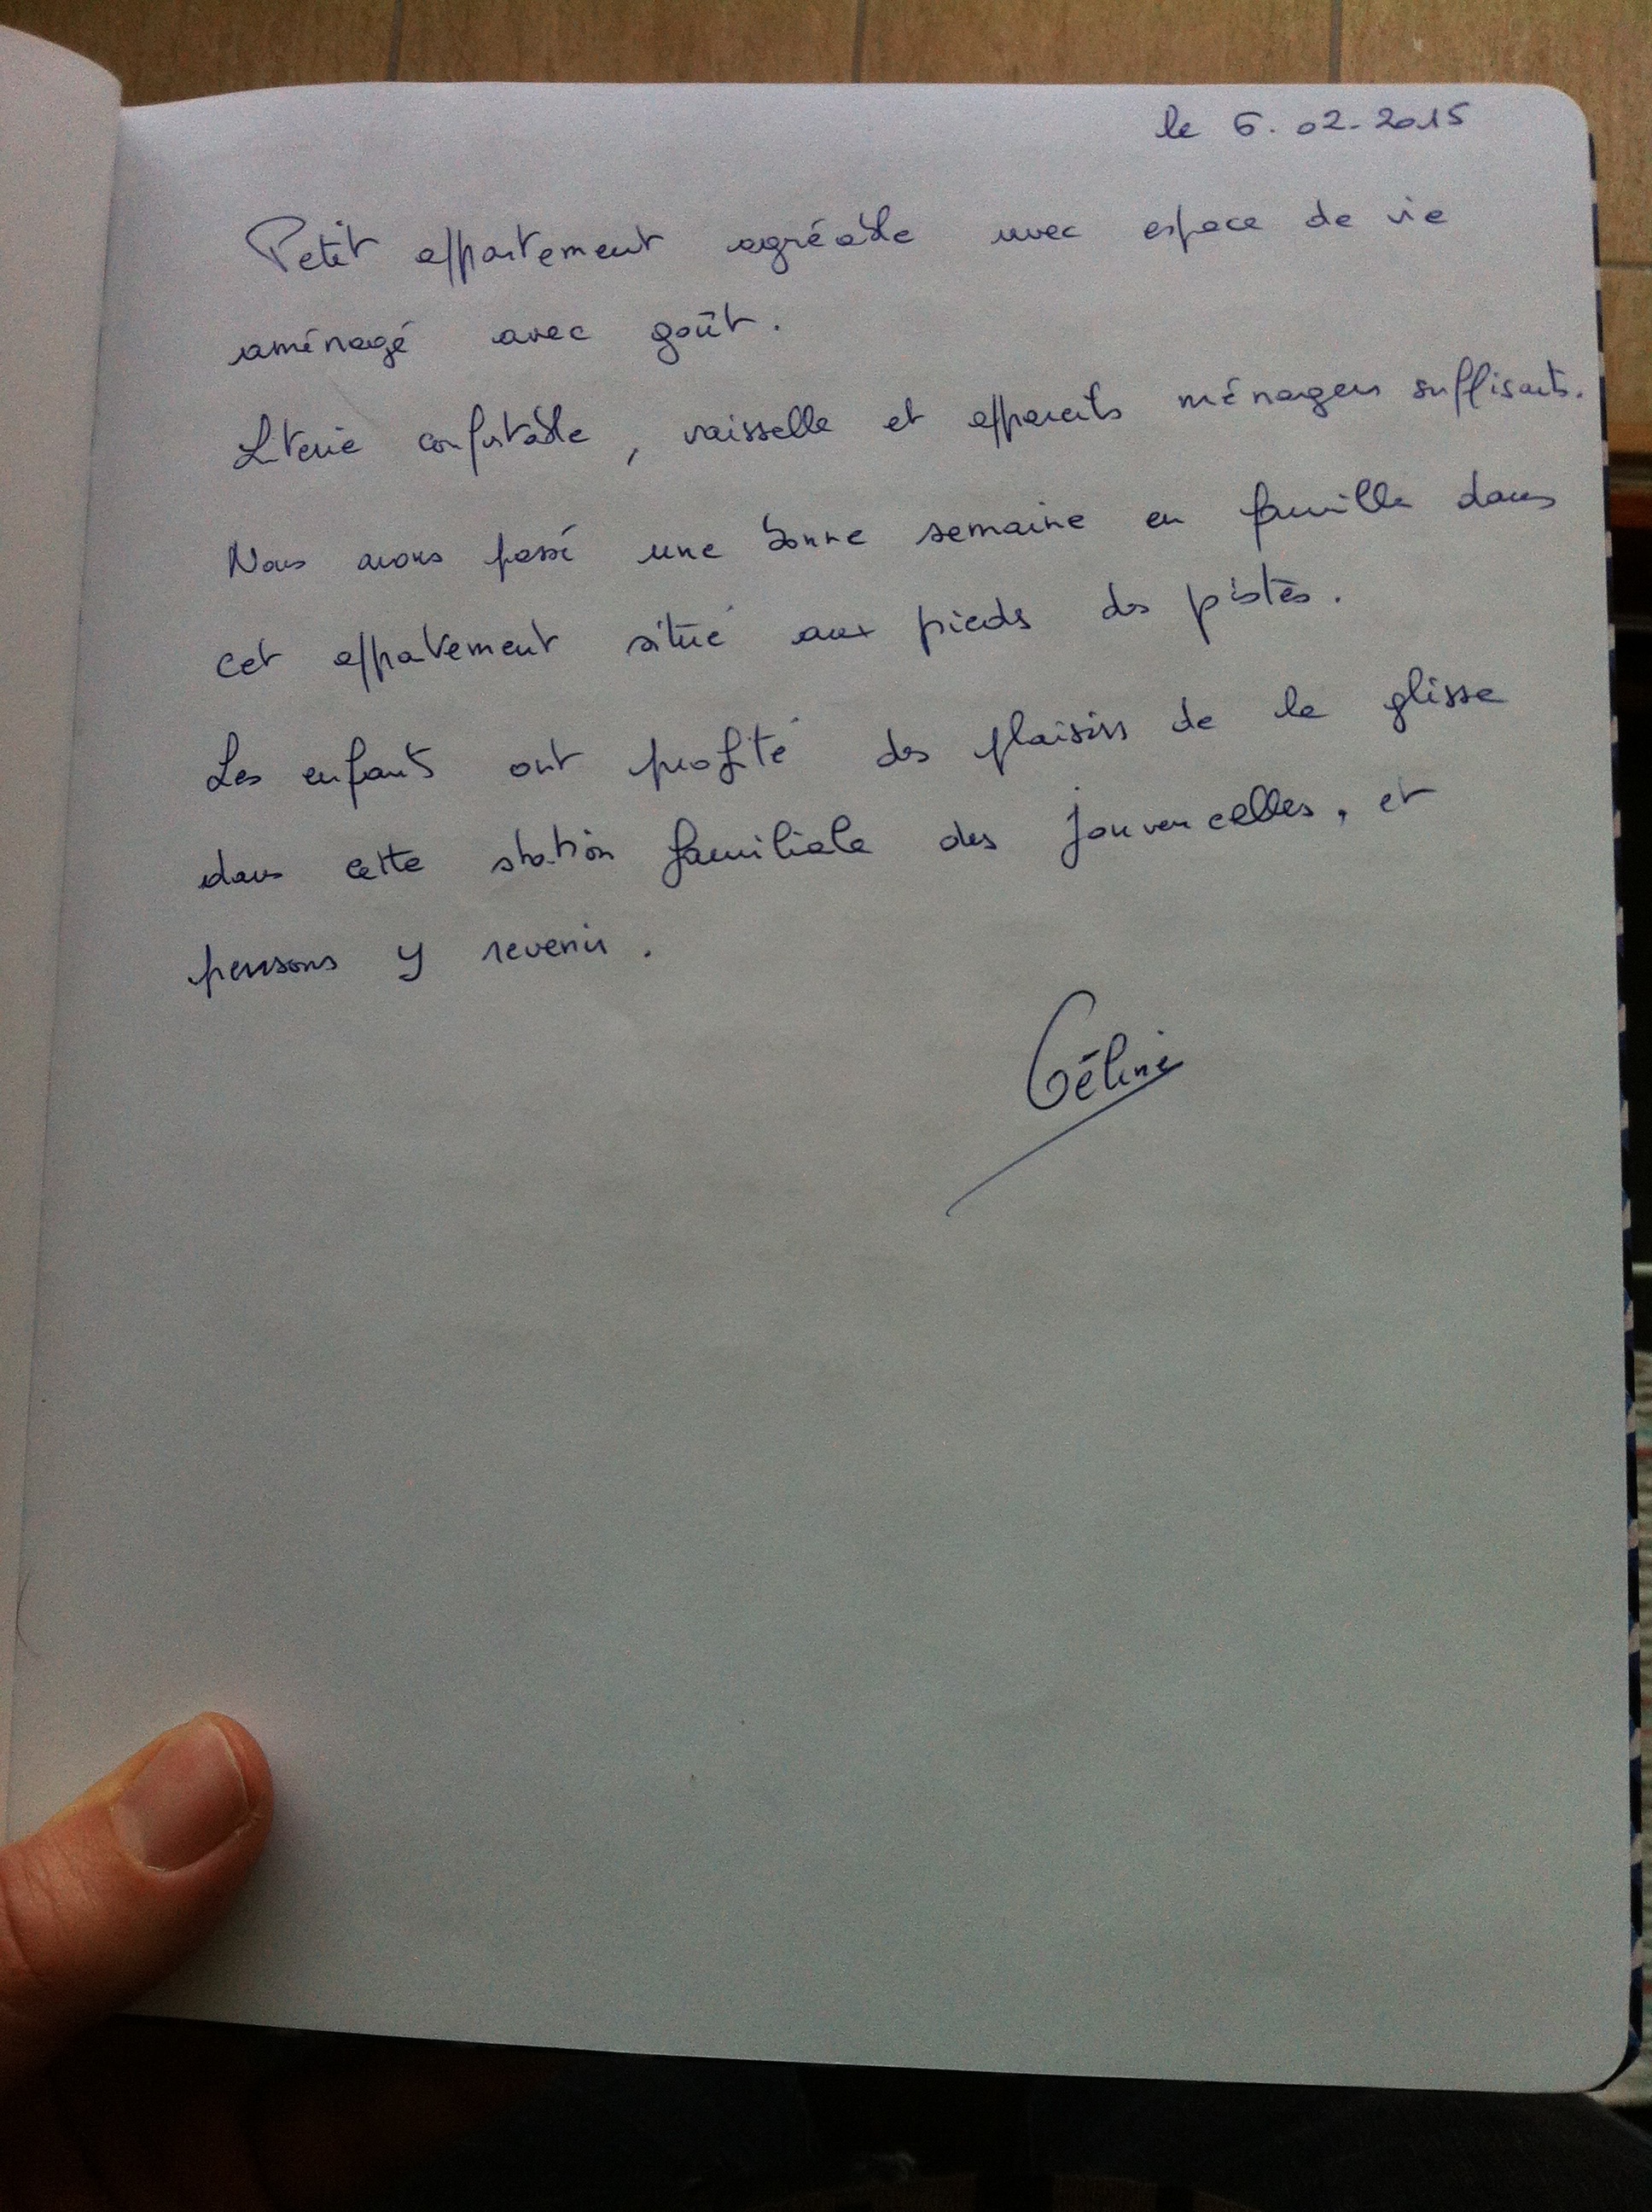 le 6. 02. 2015
Petit appartement agréable avec espace de vie
aménagé avec goût.
Literie confortable, vaisselle et appareils ménagers suffisants.
Nous avons passé une bonne semaine en famille dans
cet appartement situé aux pieds des pistes.
Les enfants ont profité des plaisirs de la glisse
dans cette station familiale des Jouvencelles, et
pensons y revenir.
Céline